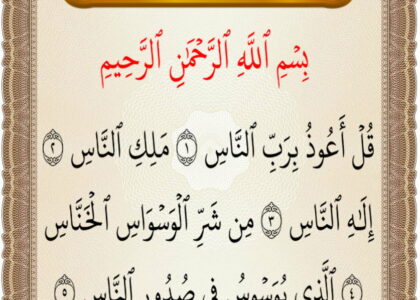 بِسۡمِ ٱللَّهِ ٱلرَّحۡمَٰنِ ٱلرَّحِيمِ
قُلۡ أَعُوذُ بِرَبِّ ٱلنَّاسِ ١ مَلِكِ ٱلنَّاسِ ٢
إِلَٰهِ ٱلنَّاسِ ٣ مِن شَرِّ ٱلۡوَسۡوَاسِ ٱلۡخَنَّاسِ
٤ ٱلَّذِي يُوَسۡوِسُ فِي صُدُورِ ٱلنَّاسِ ٥